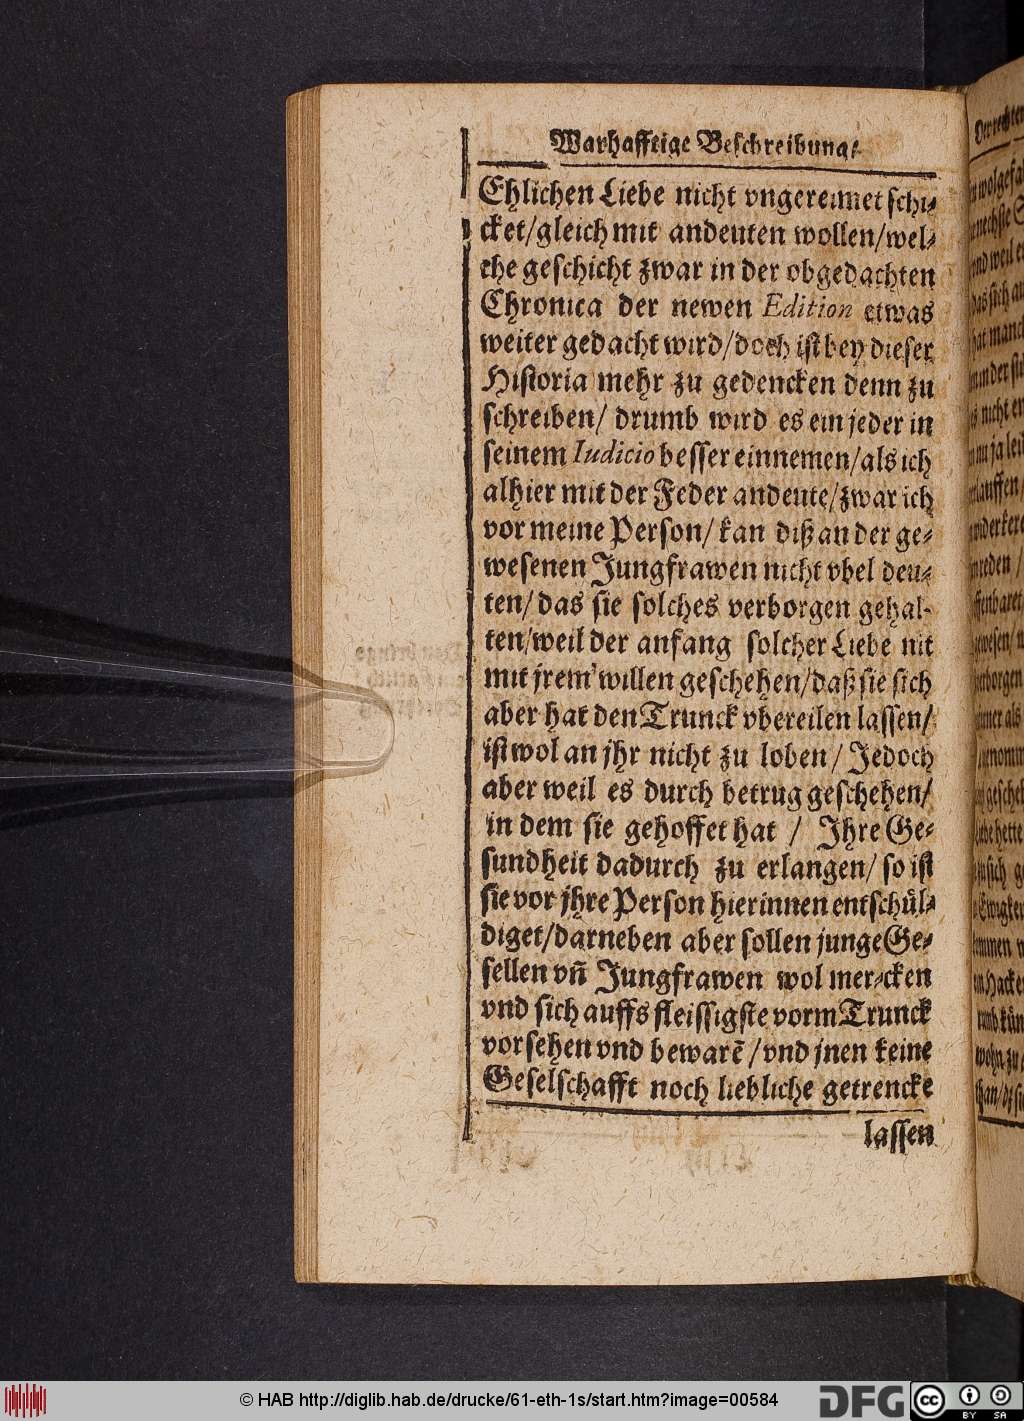 Warhafftige Beschreibung/
Ehlichen Liebe nicht vngereimet schi-
cket/gleich mit andeuten wollen/wel-
che geschicht zwar in der obgedachten
Chronica der newen Edition etwas
weiter gedacht wird/doch ist bey dieser
Historia mehr zu gedencken denn zu
schreiben/ drumb wird es ein jeder in
seinem Iudicio besser einnemen/als ich
alhier mit der Feder andeute/zwar ich
vor meine Person/ kan diß an der ge-
wesenen Jungfrawen nicht vbel deu-
ten/das sie solches verborgen gehal-
ten/weil der anfang solcher Liebe nit
mit jrem willen geschehen/daß sie sich
aber hat den Trunck vbereilen lassen/
ist wol an jhr nicht zu loben/ Jedoch
aber weil es durch betrug geschehen/
in dem sie gehoffet hat / Jhre Ge-
sundheit dadurch zu erlangen/ so ist
sie vor jhre Person hierinnen entschül-
diget/darneben aber sollen junge Ge-
sellen vñ Jungfrawen wol mer-cken
vnd sich auffs fleissigste vorm Trunck
vorsehen vnd bewarē /vnd jnen keine
Geselschafft noch liebliche getrencke
lassen
© HAB http://diglib.hab.de/drucke/61-eth-1s/start.htm?image=00584
DFG
cc BY SA